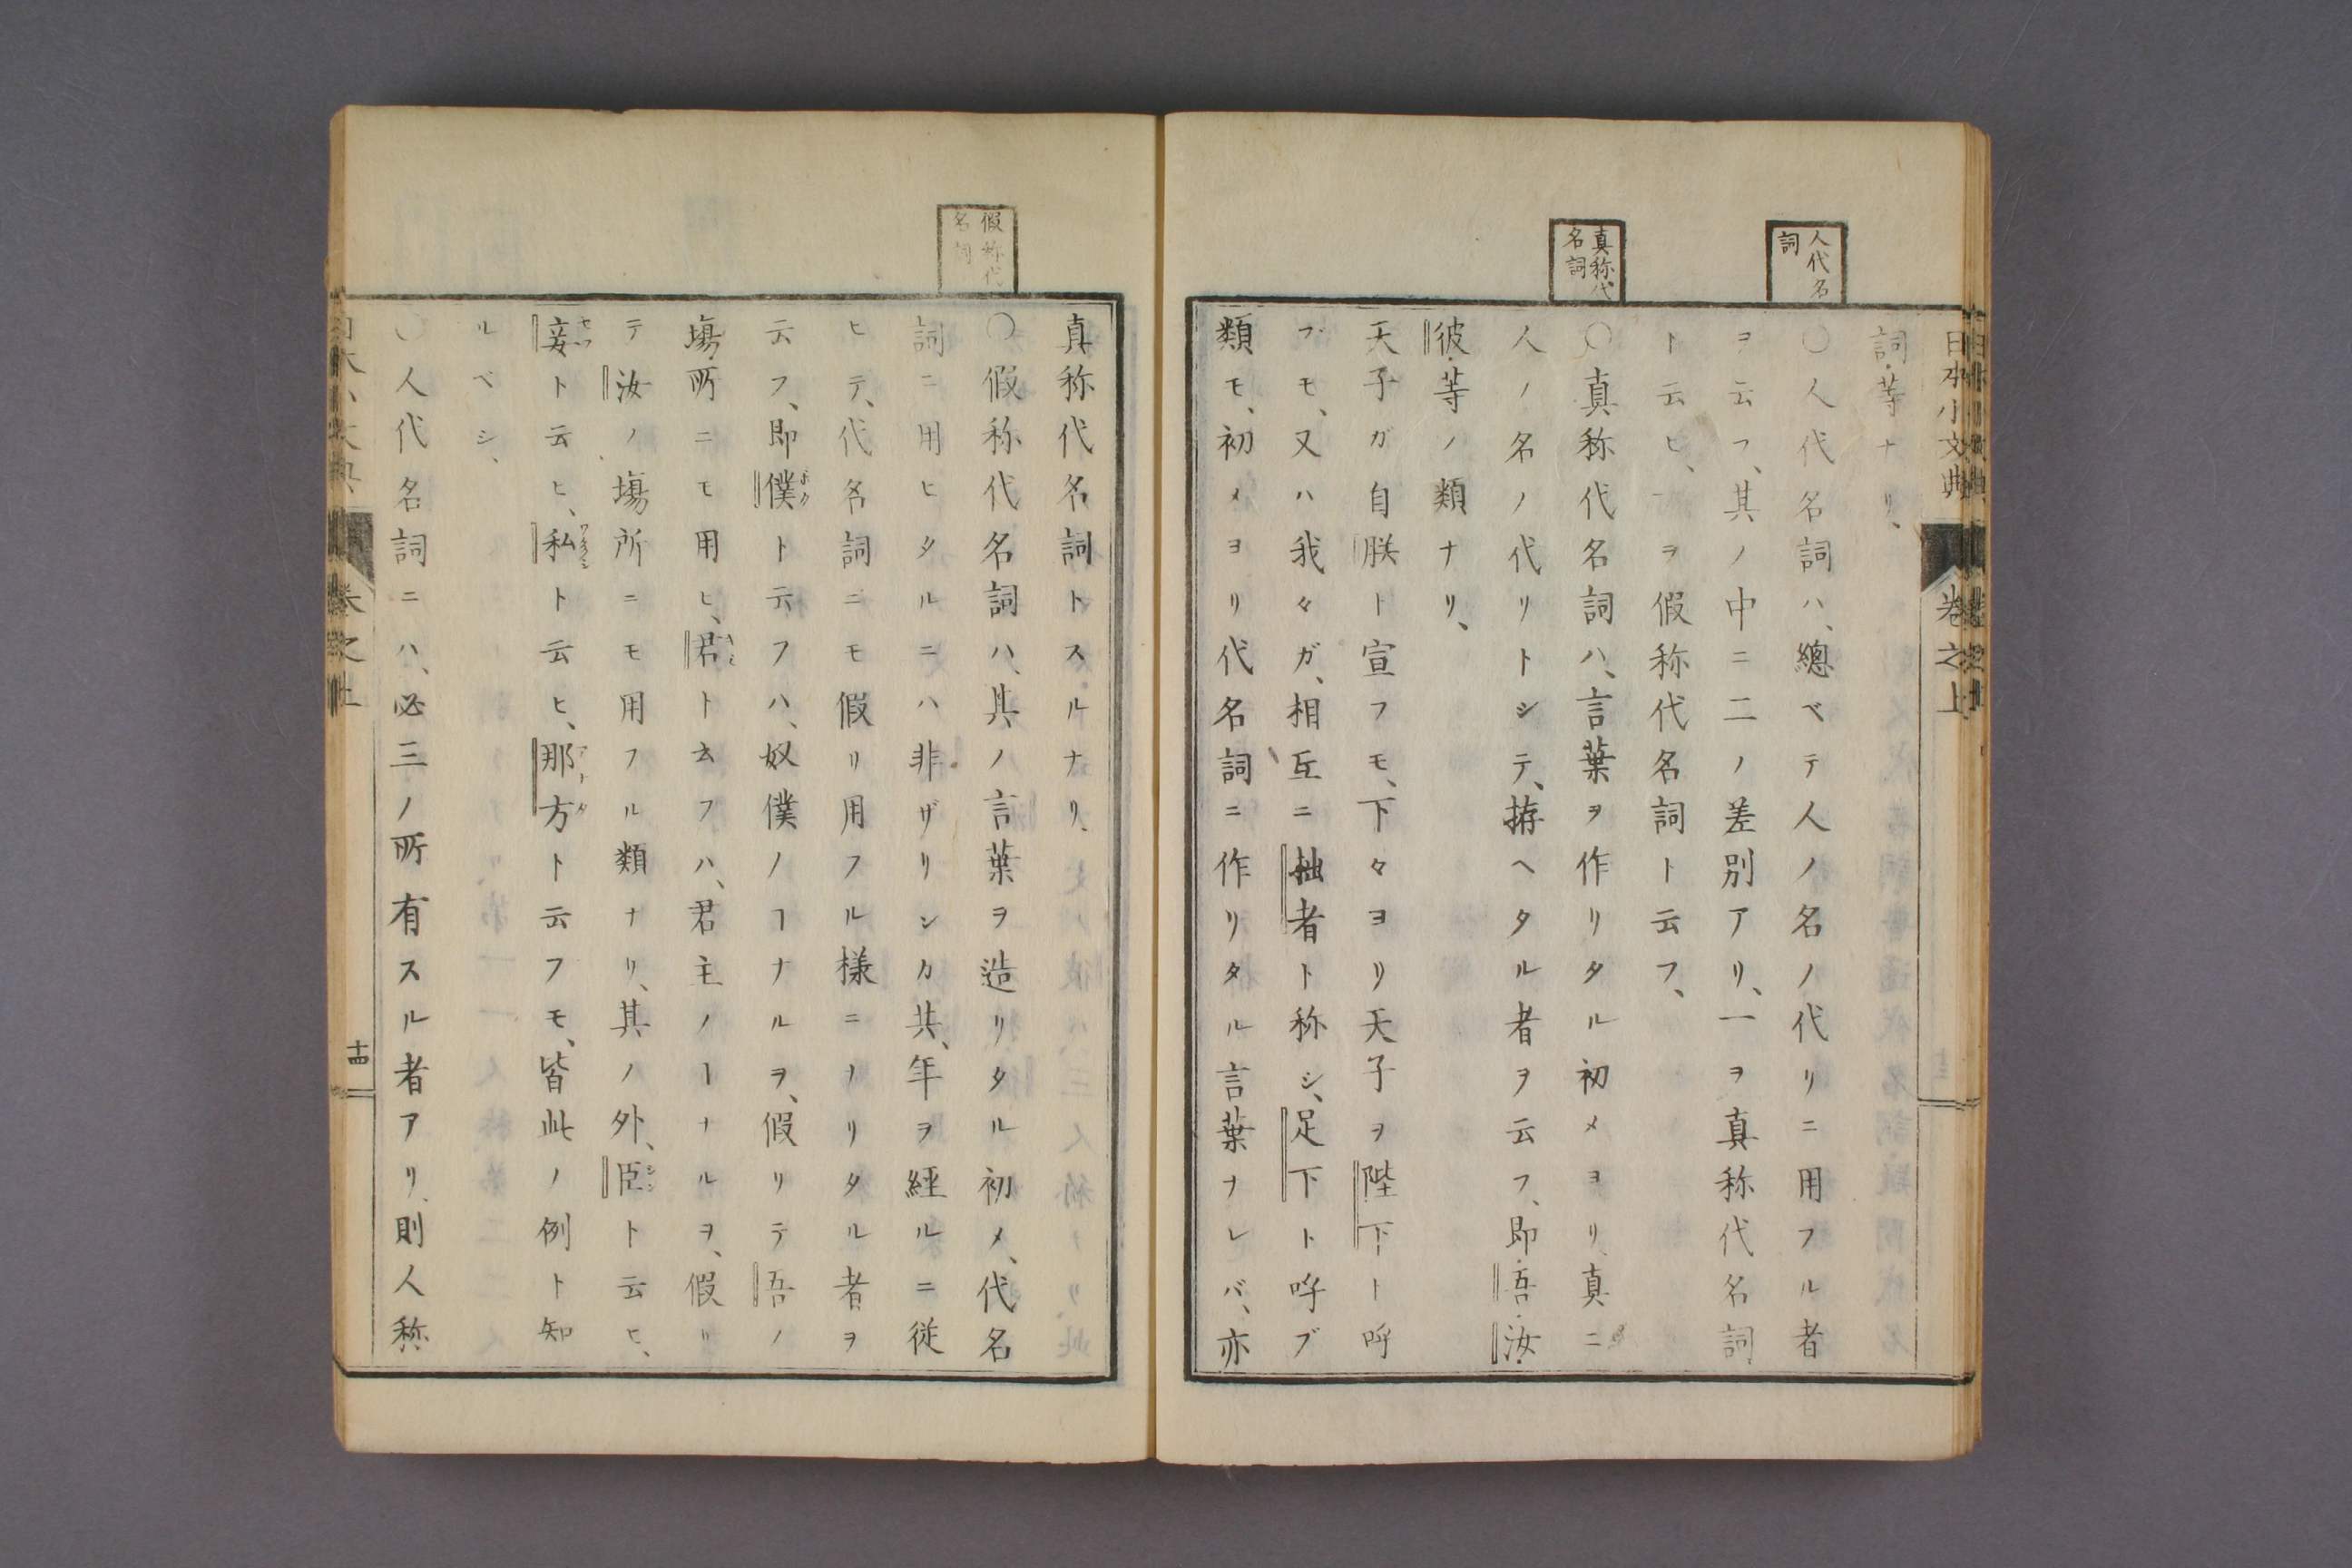 日本小文典
巻之上
詞等ナリ、
人代名
詞
〇人代名詞ハ、總ベテ人ノ名ノ代リニ用フル者
ヲ云フ、其ノ中ニ二ノ差別アリ、一ヲ真称代名詞
ト云ヒ、一ヲ假称代名詞ト云フ、
真称代
名詞
〇真称代名詞ハ、言葉ヲ作リタル初メヨリ、真ニ
人ノ名ノ代リトシテ、拵ヘタル者ヲ云フ、即吾・汝・
彼・等ノ類ナリ、
天子ガ自朕ト宣フモ、下々ヨリ天子ヲ陛下ト呼
ブモ、又ハ我々ガ、相互ニ拙者ト称シ、足下ト呼ブ
類モ、初メヨリ代名詞ニ作リタル言葉ナレバ、亦
真称代名詞トスルナリ、
假称代
名詞
〇假称代名詞ハ、其ノ言葉ヲ造リタル初メ、代名
詞ニ用ヒタルニハ非ザリシカ共、年ヲ經ルニ従
ヒテ、代名詞ニモ假リ用フル様ニナリタル者ヲ
云フ、即僕ト云フハ、奴僕ノヿナルヲ、假リテ吾ノ
塲所ニモ用ヒ、君ト云フハ、君主ノヿナルヲ、假リ
テ汝ノ塲所ニモ用フル類ナリ、其ノ外、臣ト云ヒ、
妾ト云ヒ、私ト云ヒ、那方ト云フモ、皆此ノ例ト知
ルベシ、
〇人代名詞ニハ、必三ノ所有スル者アリ、則人称
巻之上
十四